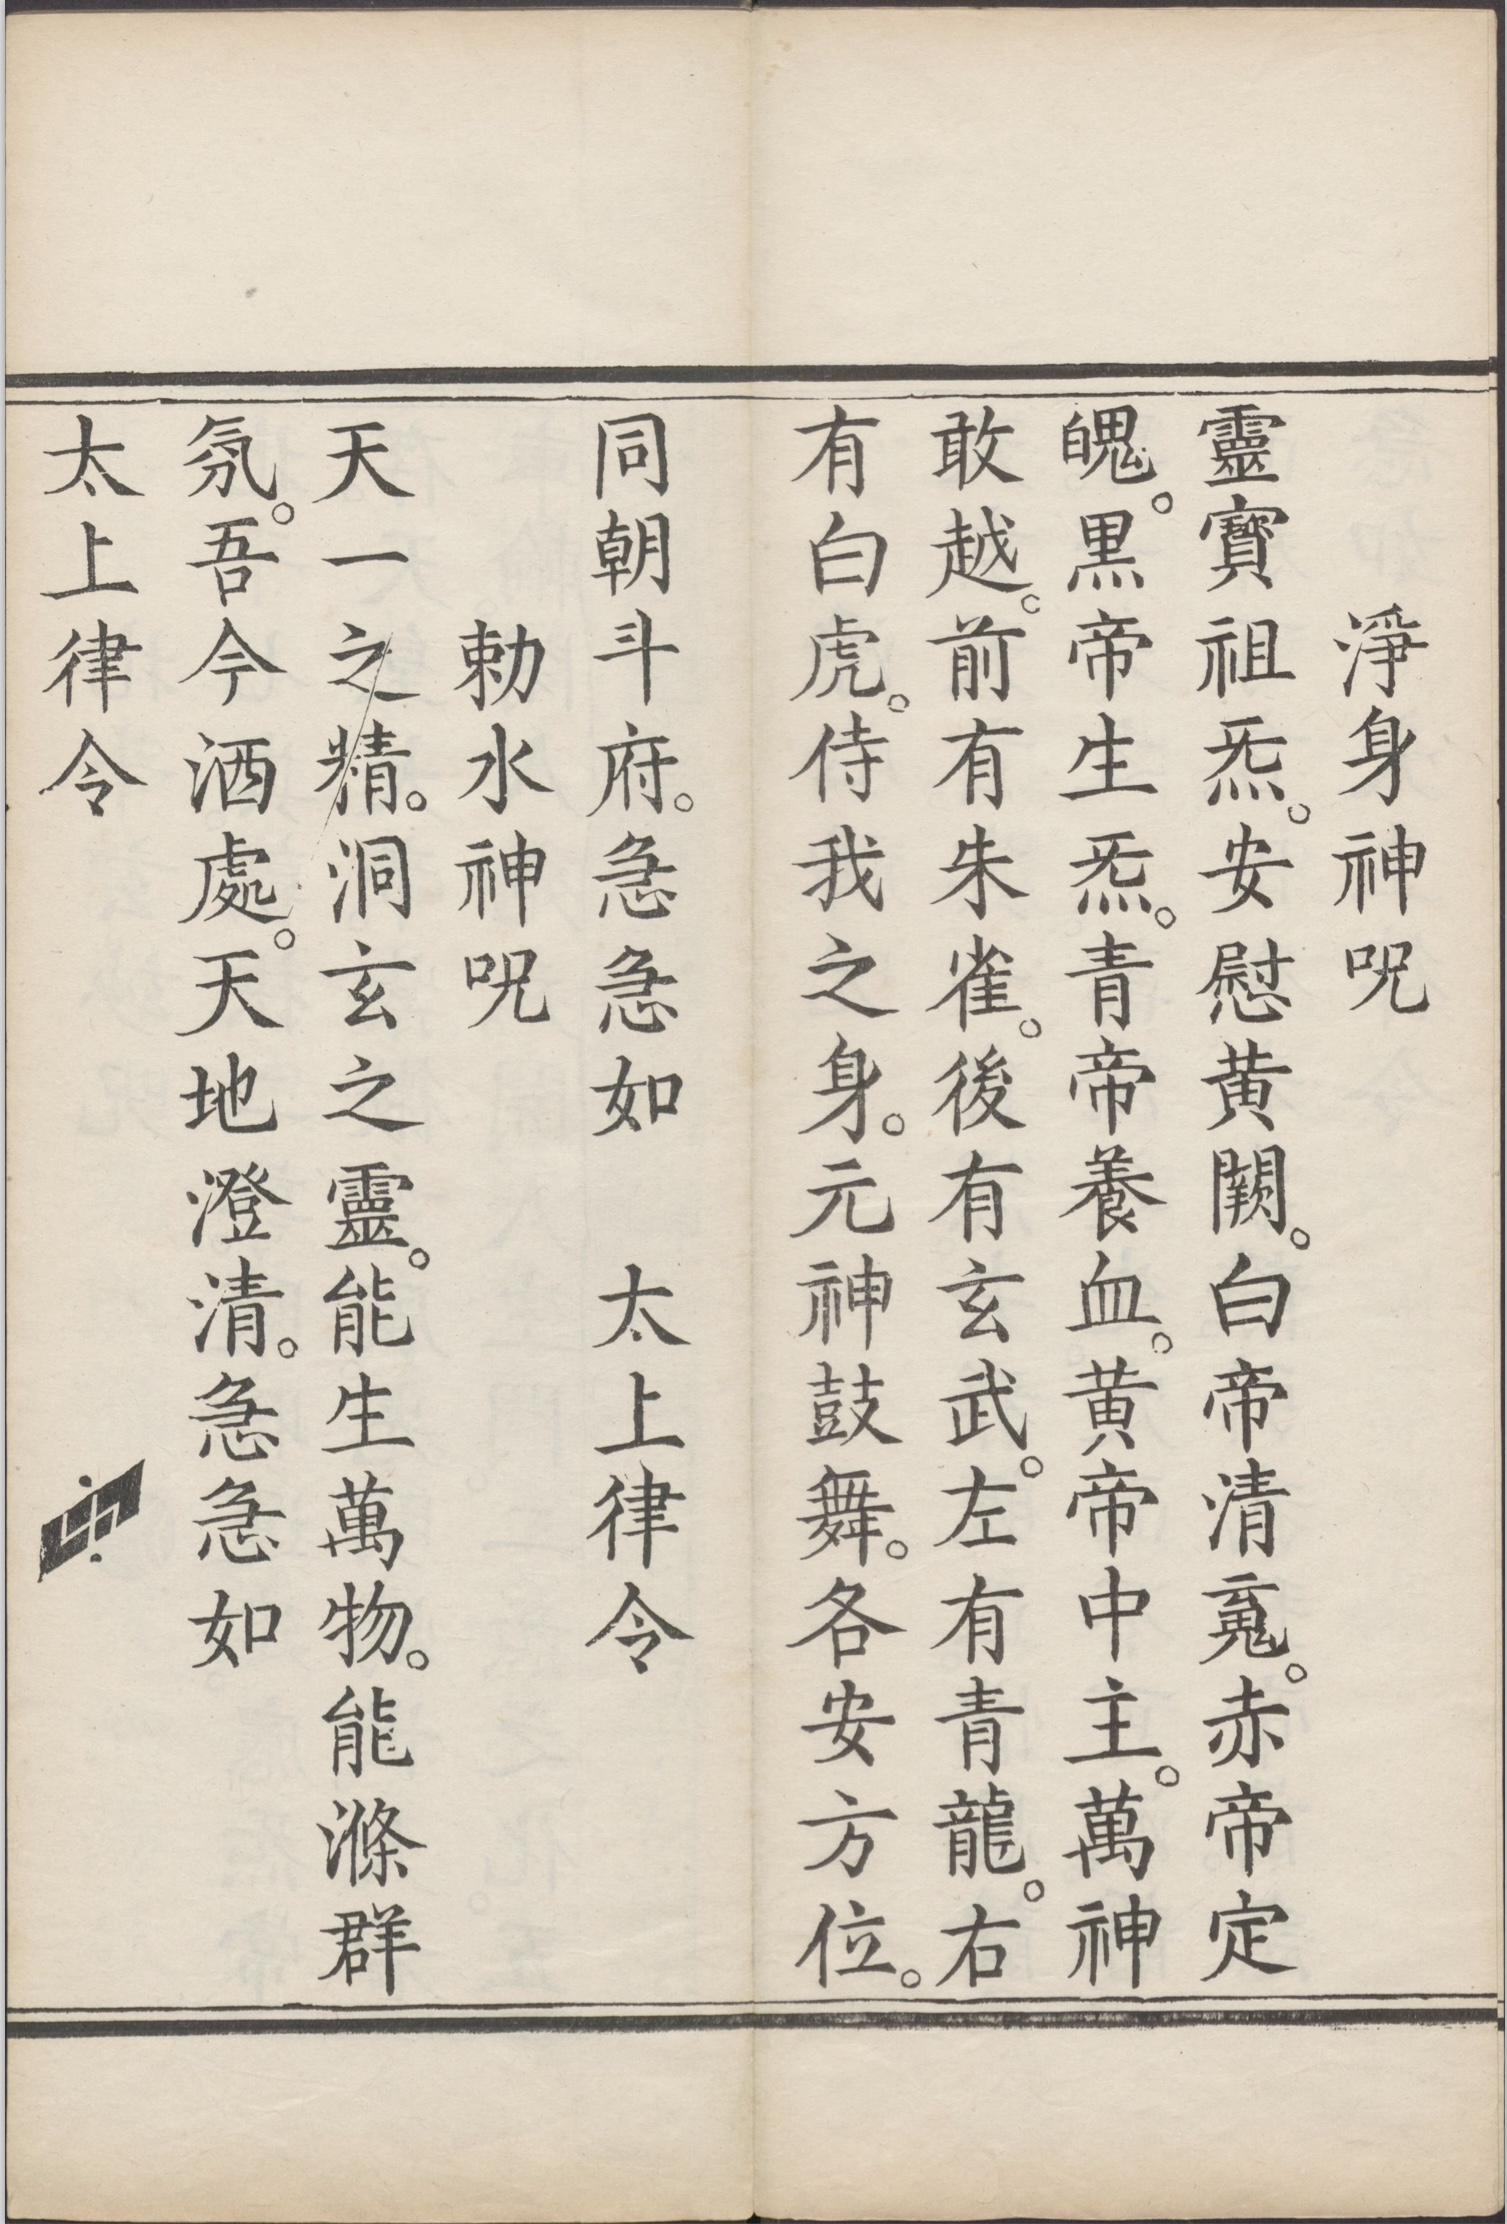 淨身神咒
靈寳祖炁。安慰黄闕。白帝清䰟。赤帝定
魄。黒帝生炁。青帝養血。黄帝中主。萬神
敢越。前有朱雀。後有玄武。左有青龍。右
有白虎。侍我之身。元神鼓舞。各安方位。
同朝斗府。急急如　太上律令
勅水神咒
天一之精。洞玄之靈。能生萬物。能滌群
氛。吾今洒處。天地澄清。急急如
太上律令